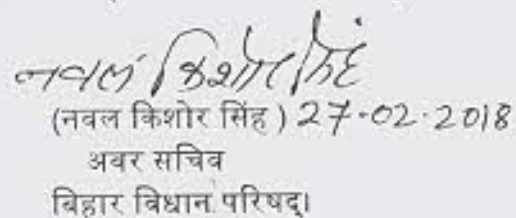 नवल किशोर सिंह
(नवल किशोर सिंह) 27.02.2018
अवर सचिव
बिहार विधान परिषद्।